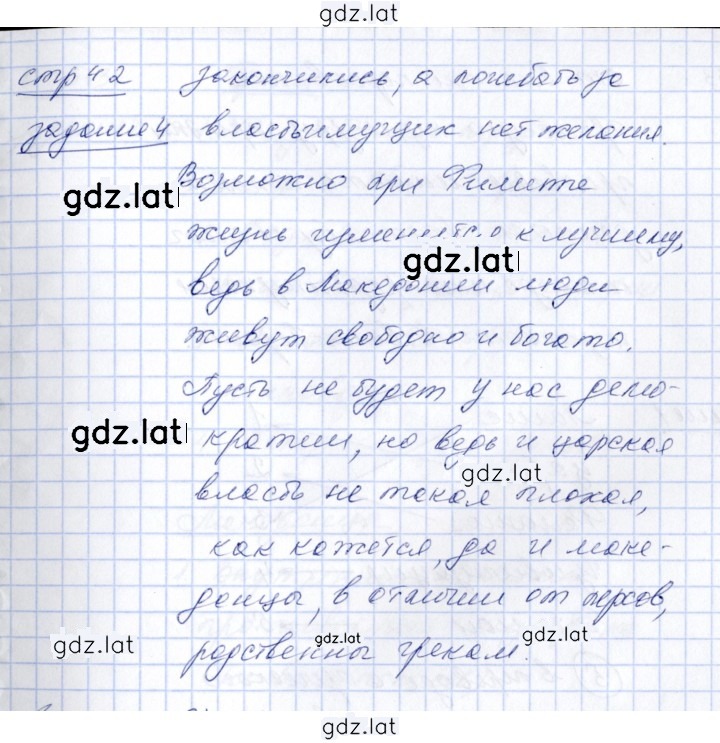 gdz.lat
стр 42 закончились, а погибать за
задание 4 властьимущих нет желания.
gdz.lat
Возможно при Филиппе
жизнь изменится к лучшему,
gdz.lat
ведь в Македонии люди
живут свободно и богато.
Пусть не будет у нас демо-
gdz.lat
кратии, но ведь и царская
gdz.lat
власть не такая плохая,
как кажется, да и маке-
донцы, в отличии от персов,
gdz.lat gdz.lat gdz.lat
родственны грекам.
gdz.lat